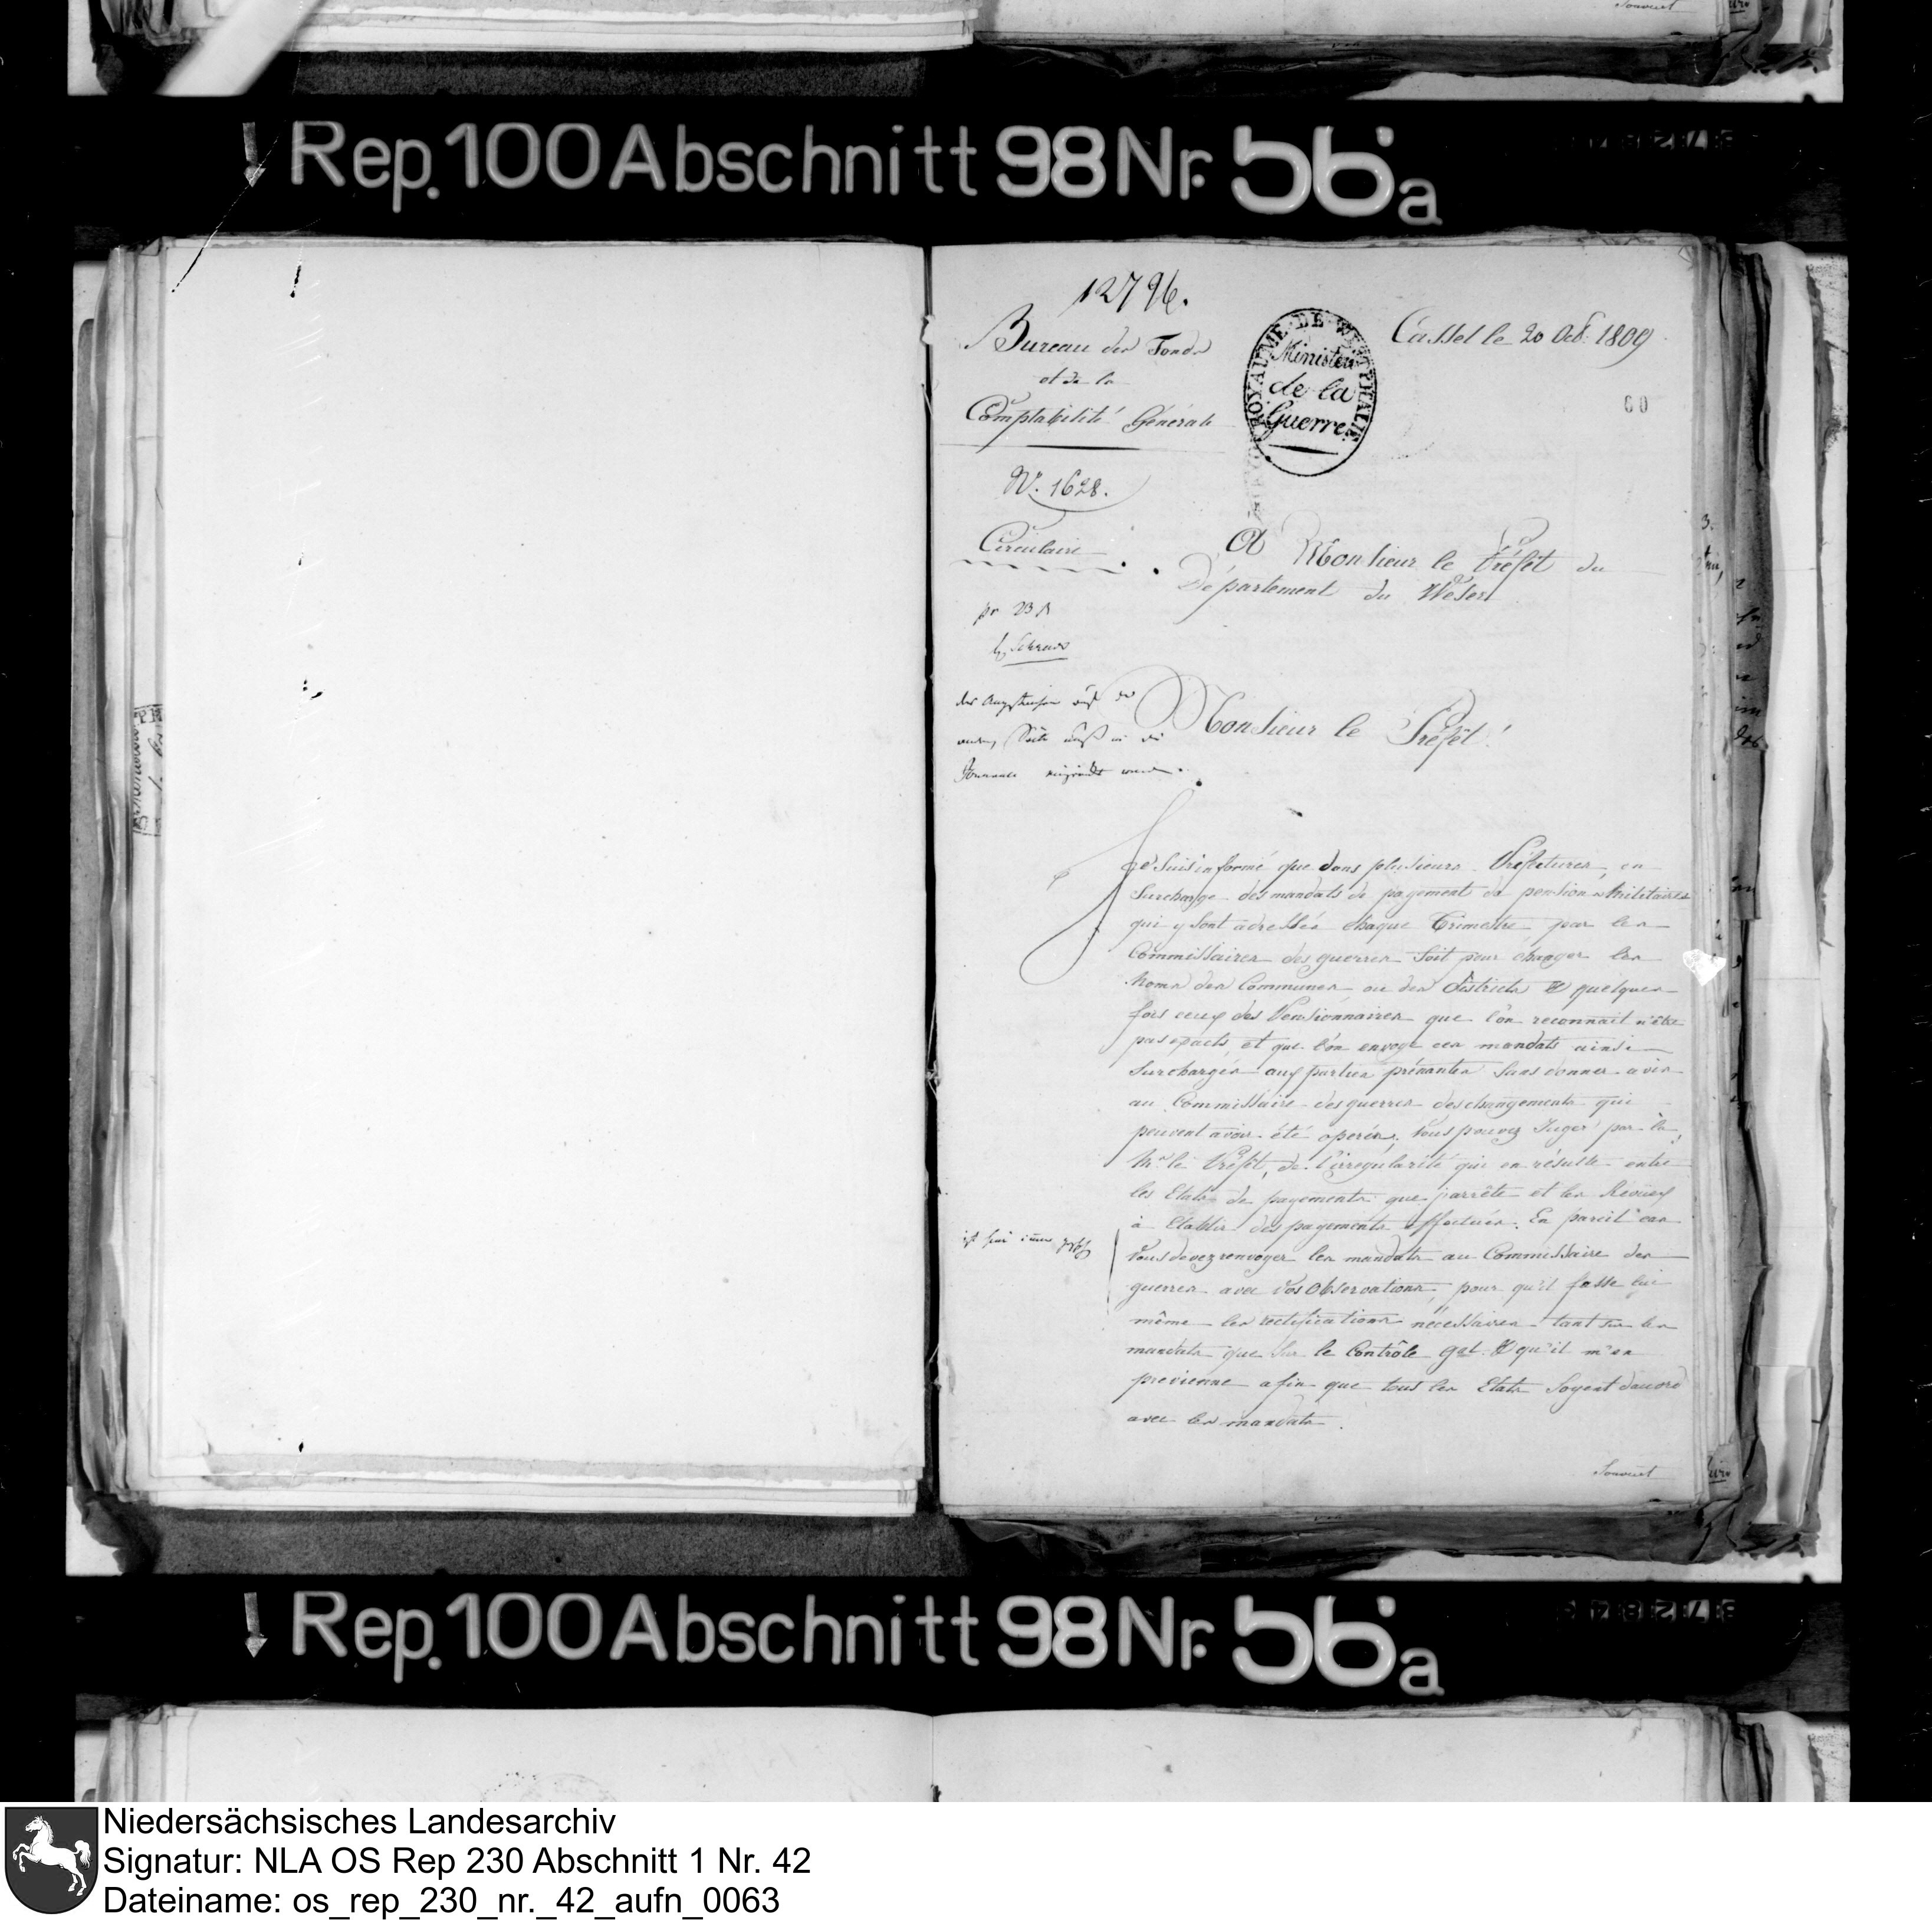 Rep. 100 Abschnitt 98 Nr. 56a
12796.
Bureau des Fonds
et de la
Comptabilité Générale
ROYAUME DE WESTPHALIE
Ministère
de la
Guerre
Cassel le 20 Oct. 1809
60
N°. 1628.
Circulaire
A Monsieur le Préfet du
Département du Weser
Monsieur le Préfet!
Je suis informé que dans plusieurs Préfectures, on
surcharge des mandats de payement de pensions Militaires
qui y sont adressés chaque Trimestre par les
Commissaires des guerres soit pour changer les
Noms des Communes ou des districts & quelques
fois ceux des Pensionnaires que l'on reconnait n'être
pas exacts, et que l'on envoye ces mandats ainsi
surchargés aux parties prénantes sans donner avis
au Commissaire des guerres des changements qui
peuvent avoir été operés; Vous pouvez Juger par là,
Mr. le Préfet, de l'irregularité qui en résulte entre
les Etats de payements que j'arrête et les Revües
à Etablir des payements effectués. En pareil cas
Vous devez renvoyer les mandats au Commissaire des
guerres avec vos Observations, pour qu'il fasse lui
même les rectifications nécessaires tant sur les
mandats que sur le Contrôle gal. & qu'il m'en
previenne afin que tous les Etats soyent d'accord
avec les mandats.
Rep. 100 Abschnitt 98 Nr. 56a
Niedersächsisches Landesarchiv
Signatur: NLA OS Rep 230 Abschnitt 1 Nr. 42
Dateiname: os_rep_230_nr._42_aufn_0063